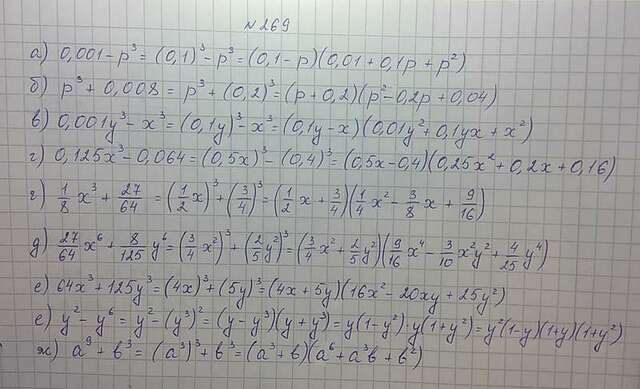 № 269
а) 0,001 - p³ = (0,1)³ - p³ = (0,1 - p)(0,01 + 0,1p + p²)
б) p³ + 0,008 = p³ + (0,2)³ = (p + 0,2)(p² - 0,2p + 0,04)
в) 0,001y³ - x³ = (0,1y)³ - x³ = (0,1y - x)(0,01y² + 0,1yx + x²)
г) 0,125x³ - 0,064 = (0,5x)³ - (0,4)³ = (0,5x - 0,4)(0,25x² + 0,2x + 0,16)
г) 1/8 x³ + 27/64 = (1/2 x)³ + (3/4)³ = (1/2 x + 3/4)(1/4 x² - 3/8 x + 9/16)
д) 27/64 x⁶ + 8/125 y⁶ = (3/4 x²)³ + (2/5 y²)³ = (3/4 x² + 2/5 y²)(9/16 x⁴ - 3/10 x²y² + 4/25 y⁴)
е) 64x³ + 125y³ = (4x)³ + (5y)³ = (4x + 5y)(16x² - 20xy + 25y²)
е) y² - y⁶ = y² - (y³)² = (y - y³)(y + y³) = y(1 - y²)·y(1 + y²) = y²(1 - y)(1 + y)(1 + y²)
ж) a⁹ + b³ = (a³)³ + b³ = (a³ + b)(a⁶ + a³b + b²)